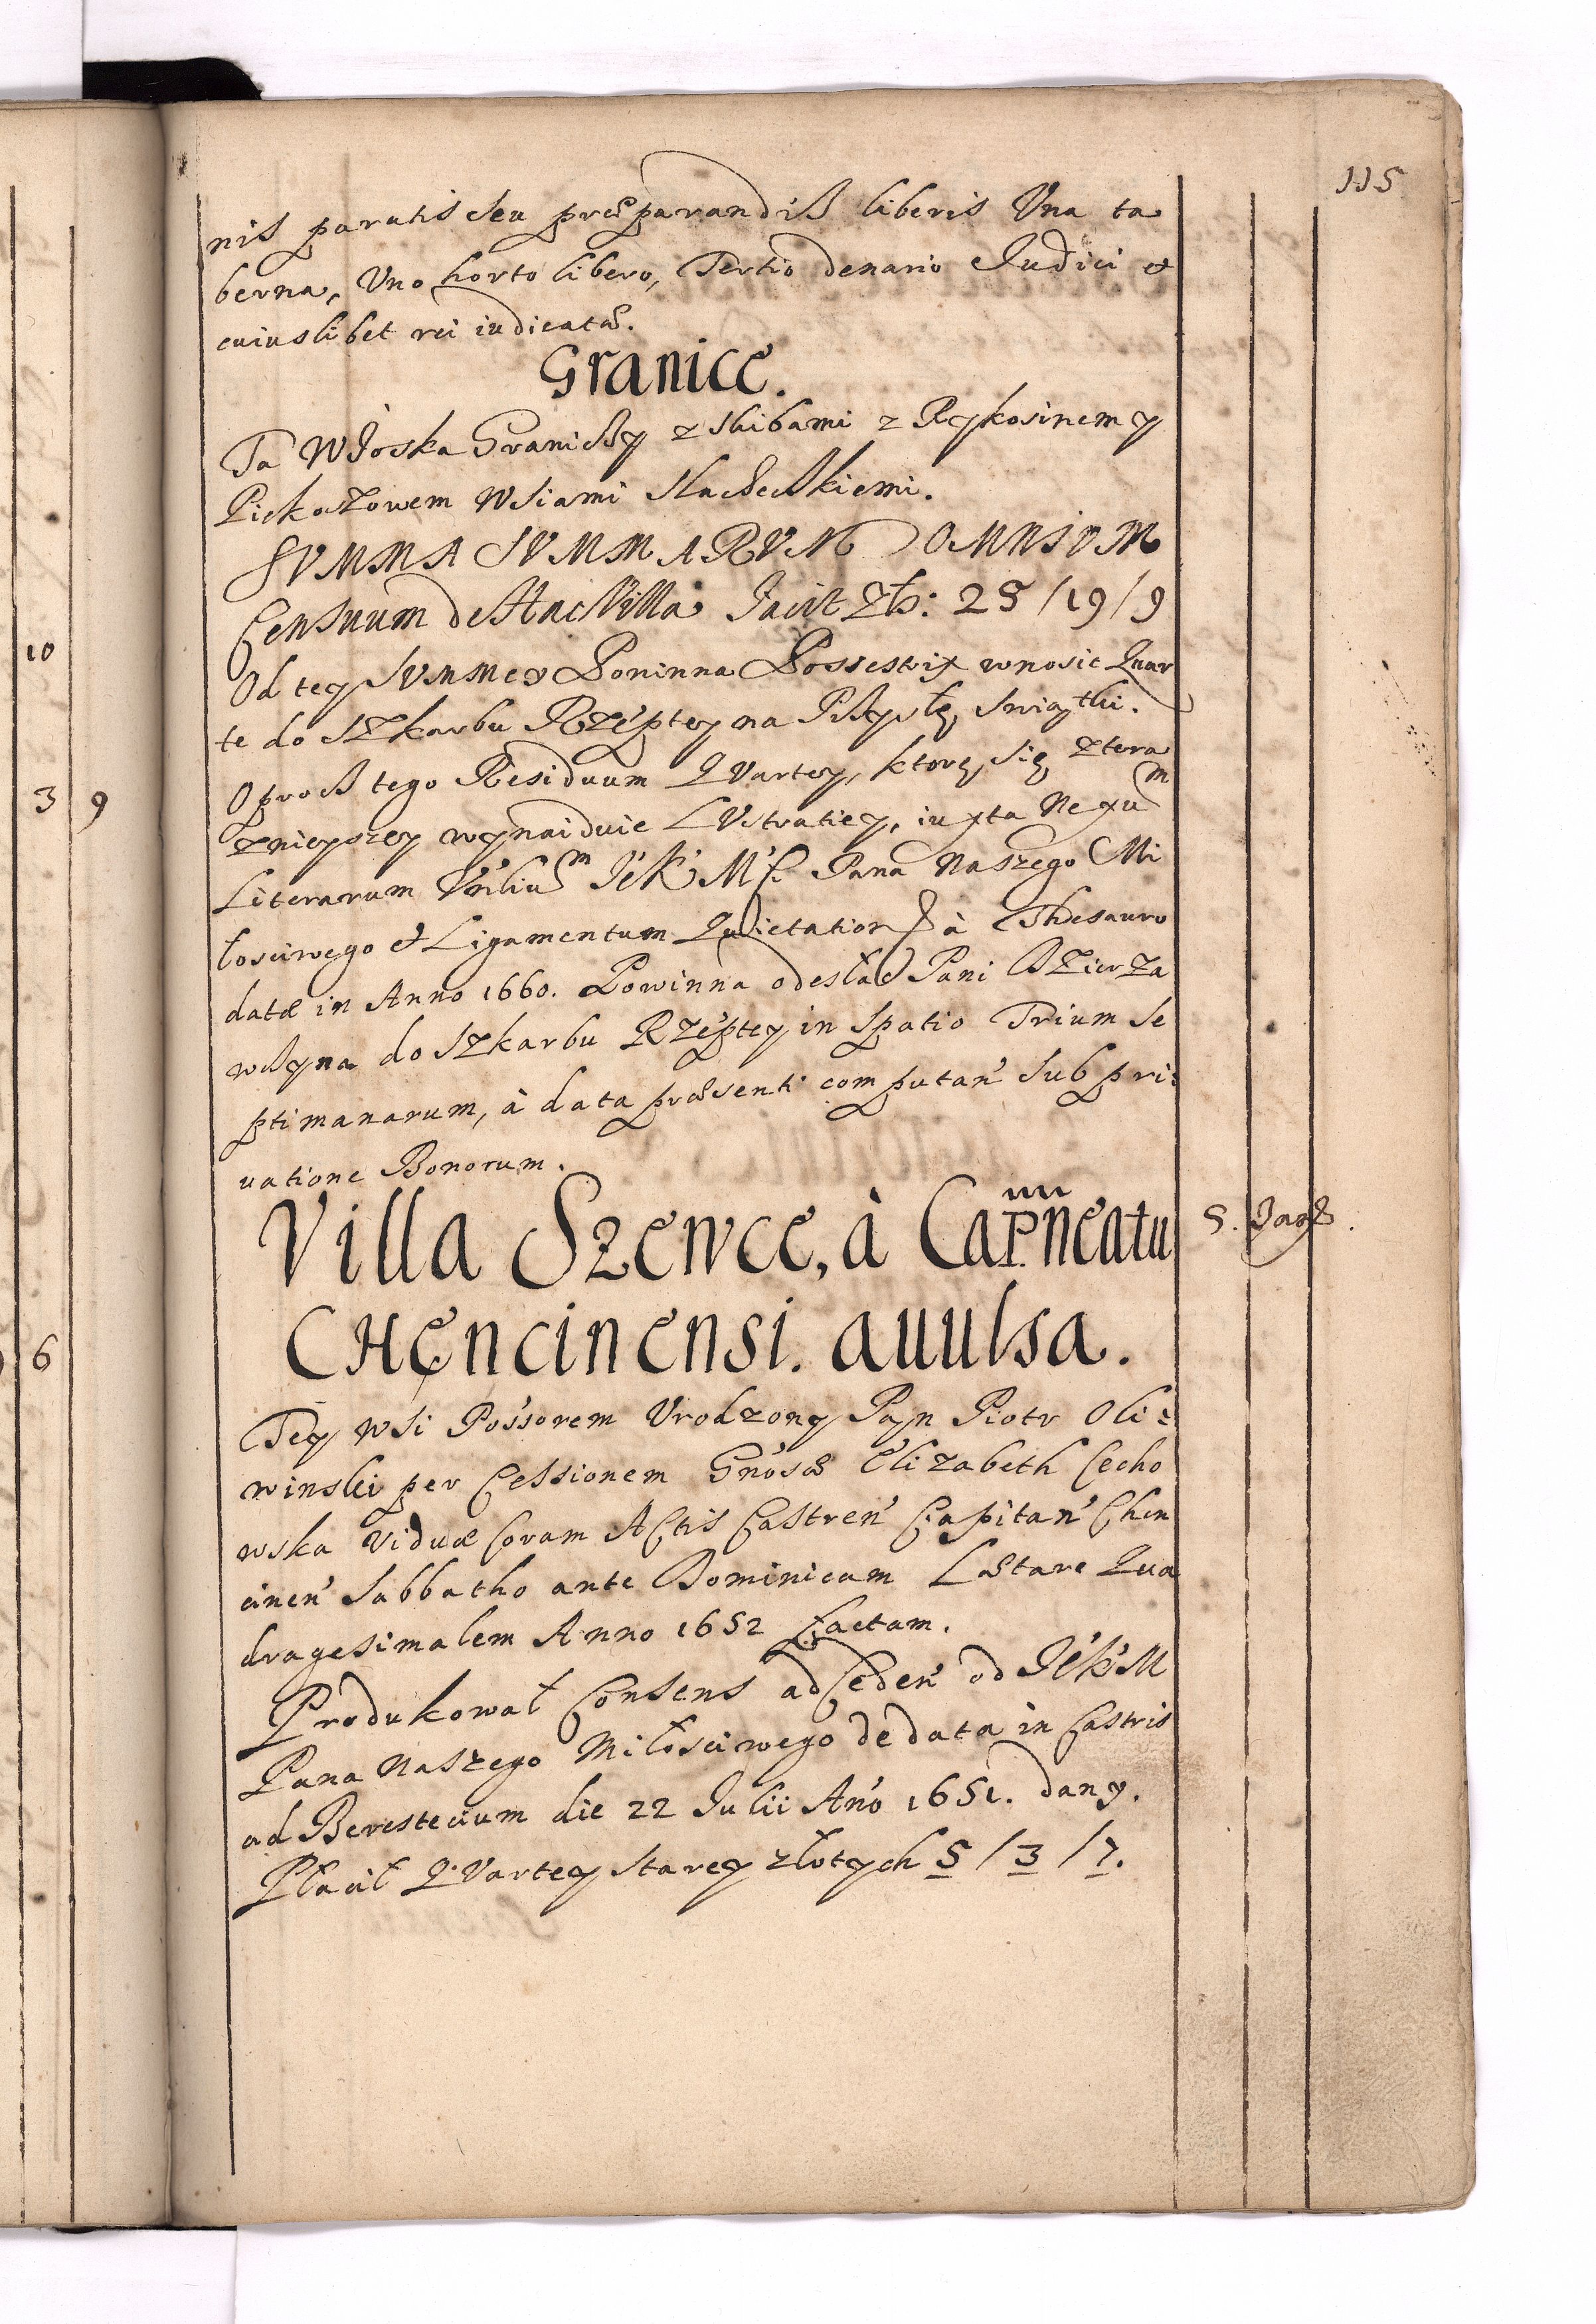 115
nis paratis seu præparandiß liberis Vna ta
berna, Vno horto libero, Tertio denario Iudici et
cuiuslibet rei iudicatæ.
Granice.
Ta Wioska Graniczy z Skibami z Rykosinem y
Piekoszowem Wsiami Slacheckiemi.
SVMMA SVMMARVM OMNIVM
Censuum de Hac Villa Facit Zł: 25/19/9
Od tey SVMMey Powinna Possestrix wnosic Quar
te do Szkarbu Rzéptey na Przyszłę Swiątki.
Oprocz tego Residuum QVartey, ktorę się z tera
znieyszey wynaiduie LVstratiey, iuxta Nexum
Literarum Vniliũm Jé K' M'ſci Pana Naszego Mi
łosciwego et Ligamentum Quietationis à Thesauro
datæ in Anno 1660. Powinna odesłać Pani Dzierza
wczyna do Szkarbu Rzéptey in Spatio Trium Se
ptimanarum, à data præsenti computan' Sub pri:
uatione Bonorum.
Villa Szewce, à Capnneatu
5. Fags.
CHęncinensi. auulsa.
Tey Wsi Pos'sorem Vrodzony Pan Piotr Oli:
winski per Cessionem G'nosæ Elizabeth Cecho
wska Viduæ Coram Actis Castren' Capitan' Chen
cinen' Sabbatho ante Dominicam Lætare Qua
dragesimalem Anno 1652 factam.
Produkował Consens ad Ceden' od Jé K' M
Pana Naszego Miłosciwego de data in Castris
ad Berestecium die 22 Iulii An'o 1651. dany.
Płacił QVartey Starey złotych 5/3/7.
10
3 9
6